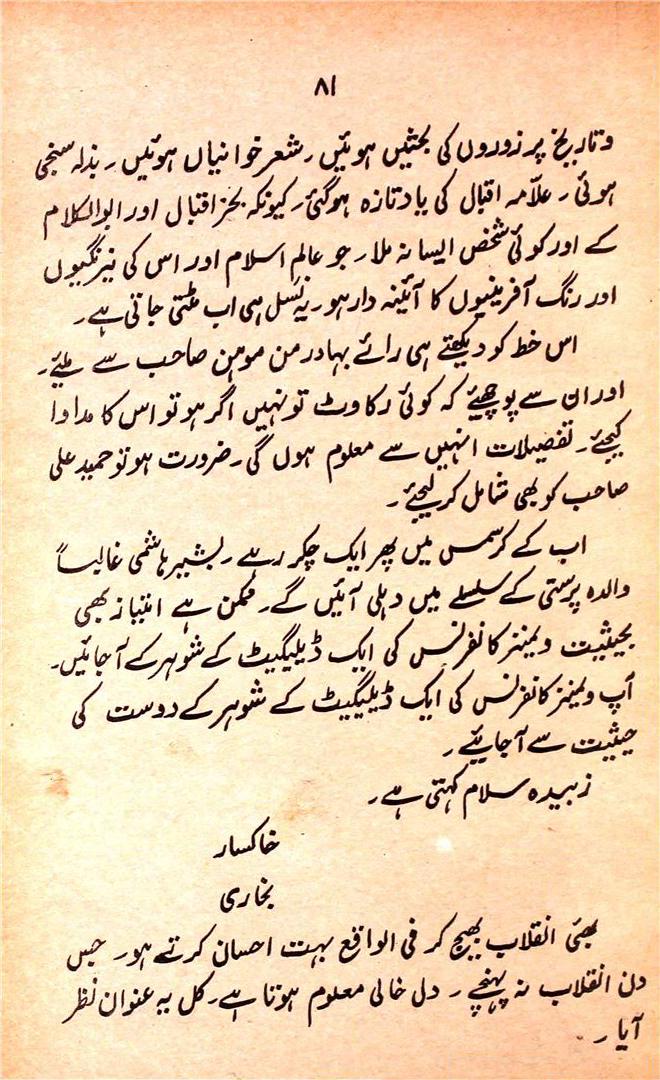 ۸۱
و تاریخ پر زوروں کی بحثیں ہوئیں ۔ شعر خوانیاں ہوئیں ۔ بذلہ سنجی
ہوئی ۔ علّامہ اقبال کی یاد تازہ ہوگئی ۔ کیونکہ بجز اقبال اور ابوالکلام
کے اور کوئی شخص ایسا نہ ملا ۔ جو عالمِ اسلام اور اس کی نیرنگیوں
اور رنگ آفرینیوں کا آئینہ دار ہو ۔ یہ نسل ہی اب مٹتی جاتی ہے ۔
اس خط کو دیکھتے ہی رائے بہادر من موہن صاحب سے ملیے ۔
اور ان سے پوچھیئے کہ کوئی رکاوٹ تو نہیں اگر ہو تو اس کا مداوا
کیجئے ۔ تفصیلات انہیں سے معلوم ہوں گی ۔ ضرورت ہو تو حمید علی
صاحب کو بھی شامل کر لیجئے ۔
اب کے کرسمس میں پھر ایک چکر رہے ۔ بشیر ہاشمی غالباً
والدہ پرستی کے سلسلے میں دہلی آئیں گے ۔ ممکن ہے امتیاز بھی
بحیثیت ویمینز کانفرنس کی ایک ڈیلیگیٹ کے شوہر کے آجائیں ۔
آپ ویمینز کانفرنس کی ایک ڈیلیگیٹ کے شوہر کے دوست کی
حیثیت سے آجایئے ۔
زبیدہ سلام کہتی ہے ۔
خاکسار
بخاری
بھئی انقلاب بھیج کر فی الواقع بہت احسان کرتے ہو ۔ جس
دن انقلاب نہ پہنچے ۔ دل خالی معلوم ہوتا ہے ۔ کل یہ عنوان نظر
آیا ۔